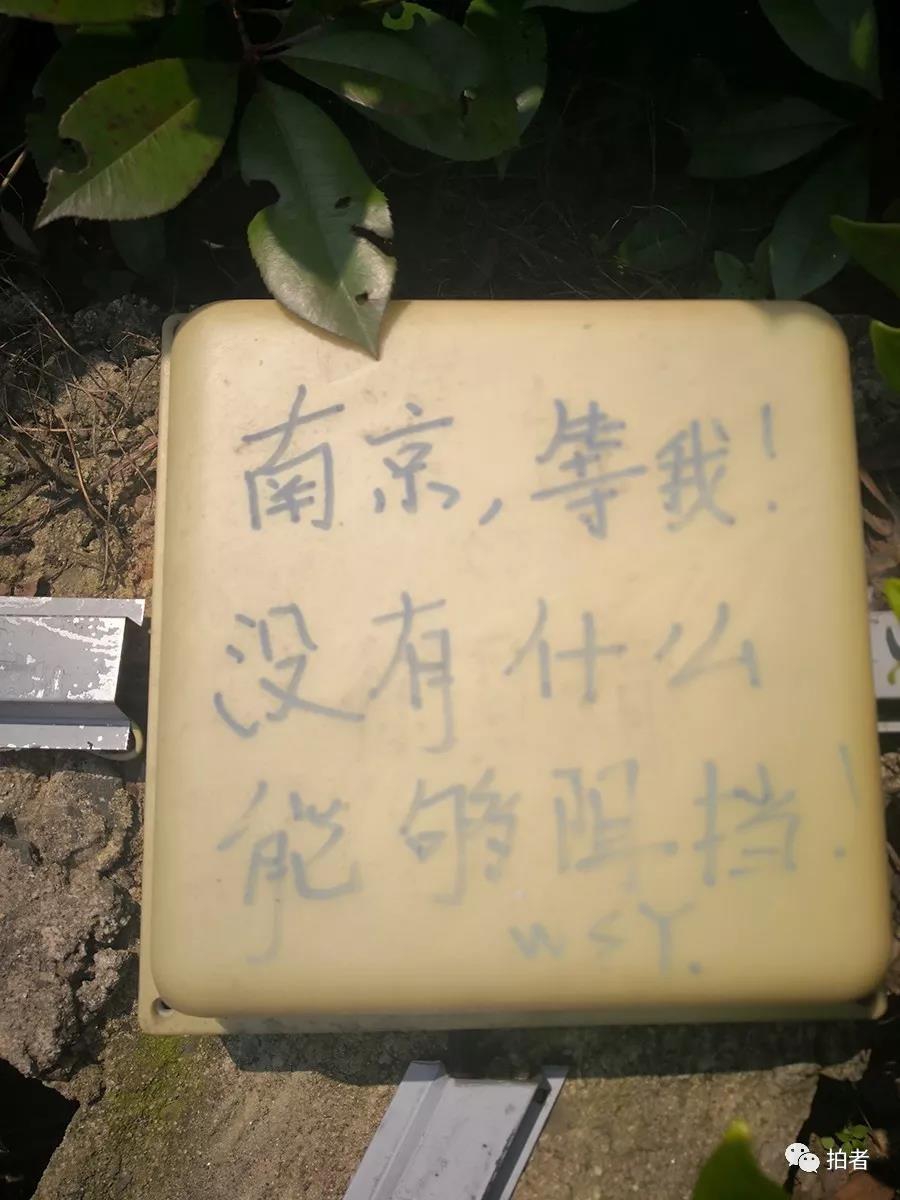 南京,等我!
没有什么
能够阻挡!
WSY.
拍者